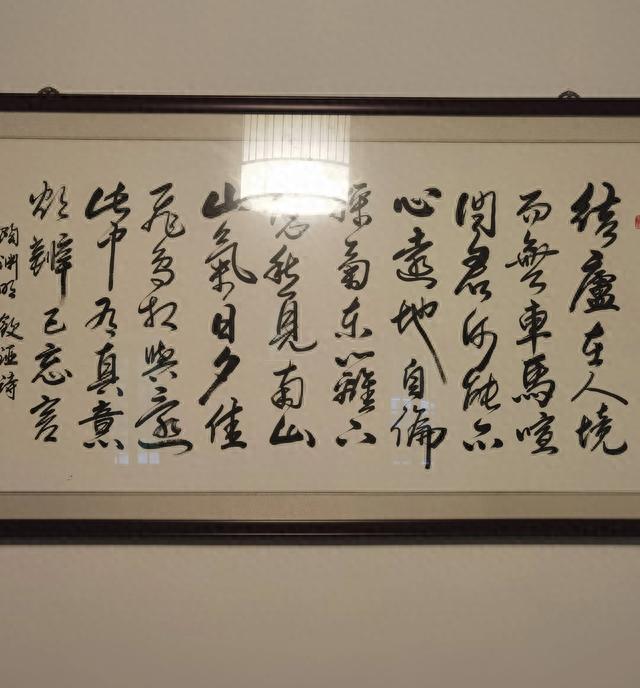 結廬在人境
而無車馬喧
問君何能尔
心遠地自偏
採菊東籬下
悠然見南山
山氣日夕佳
飛鳥相與還
此中有真意
欲辨已忘言
陶渊明飲酒詩